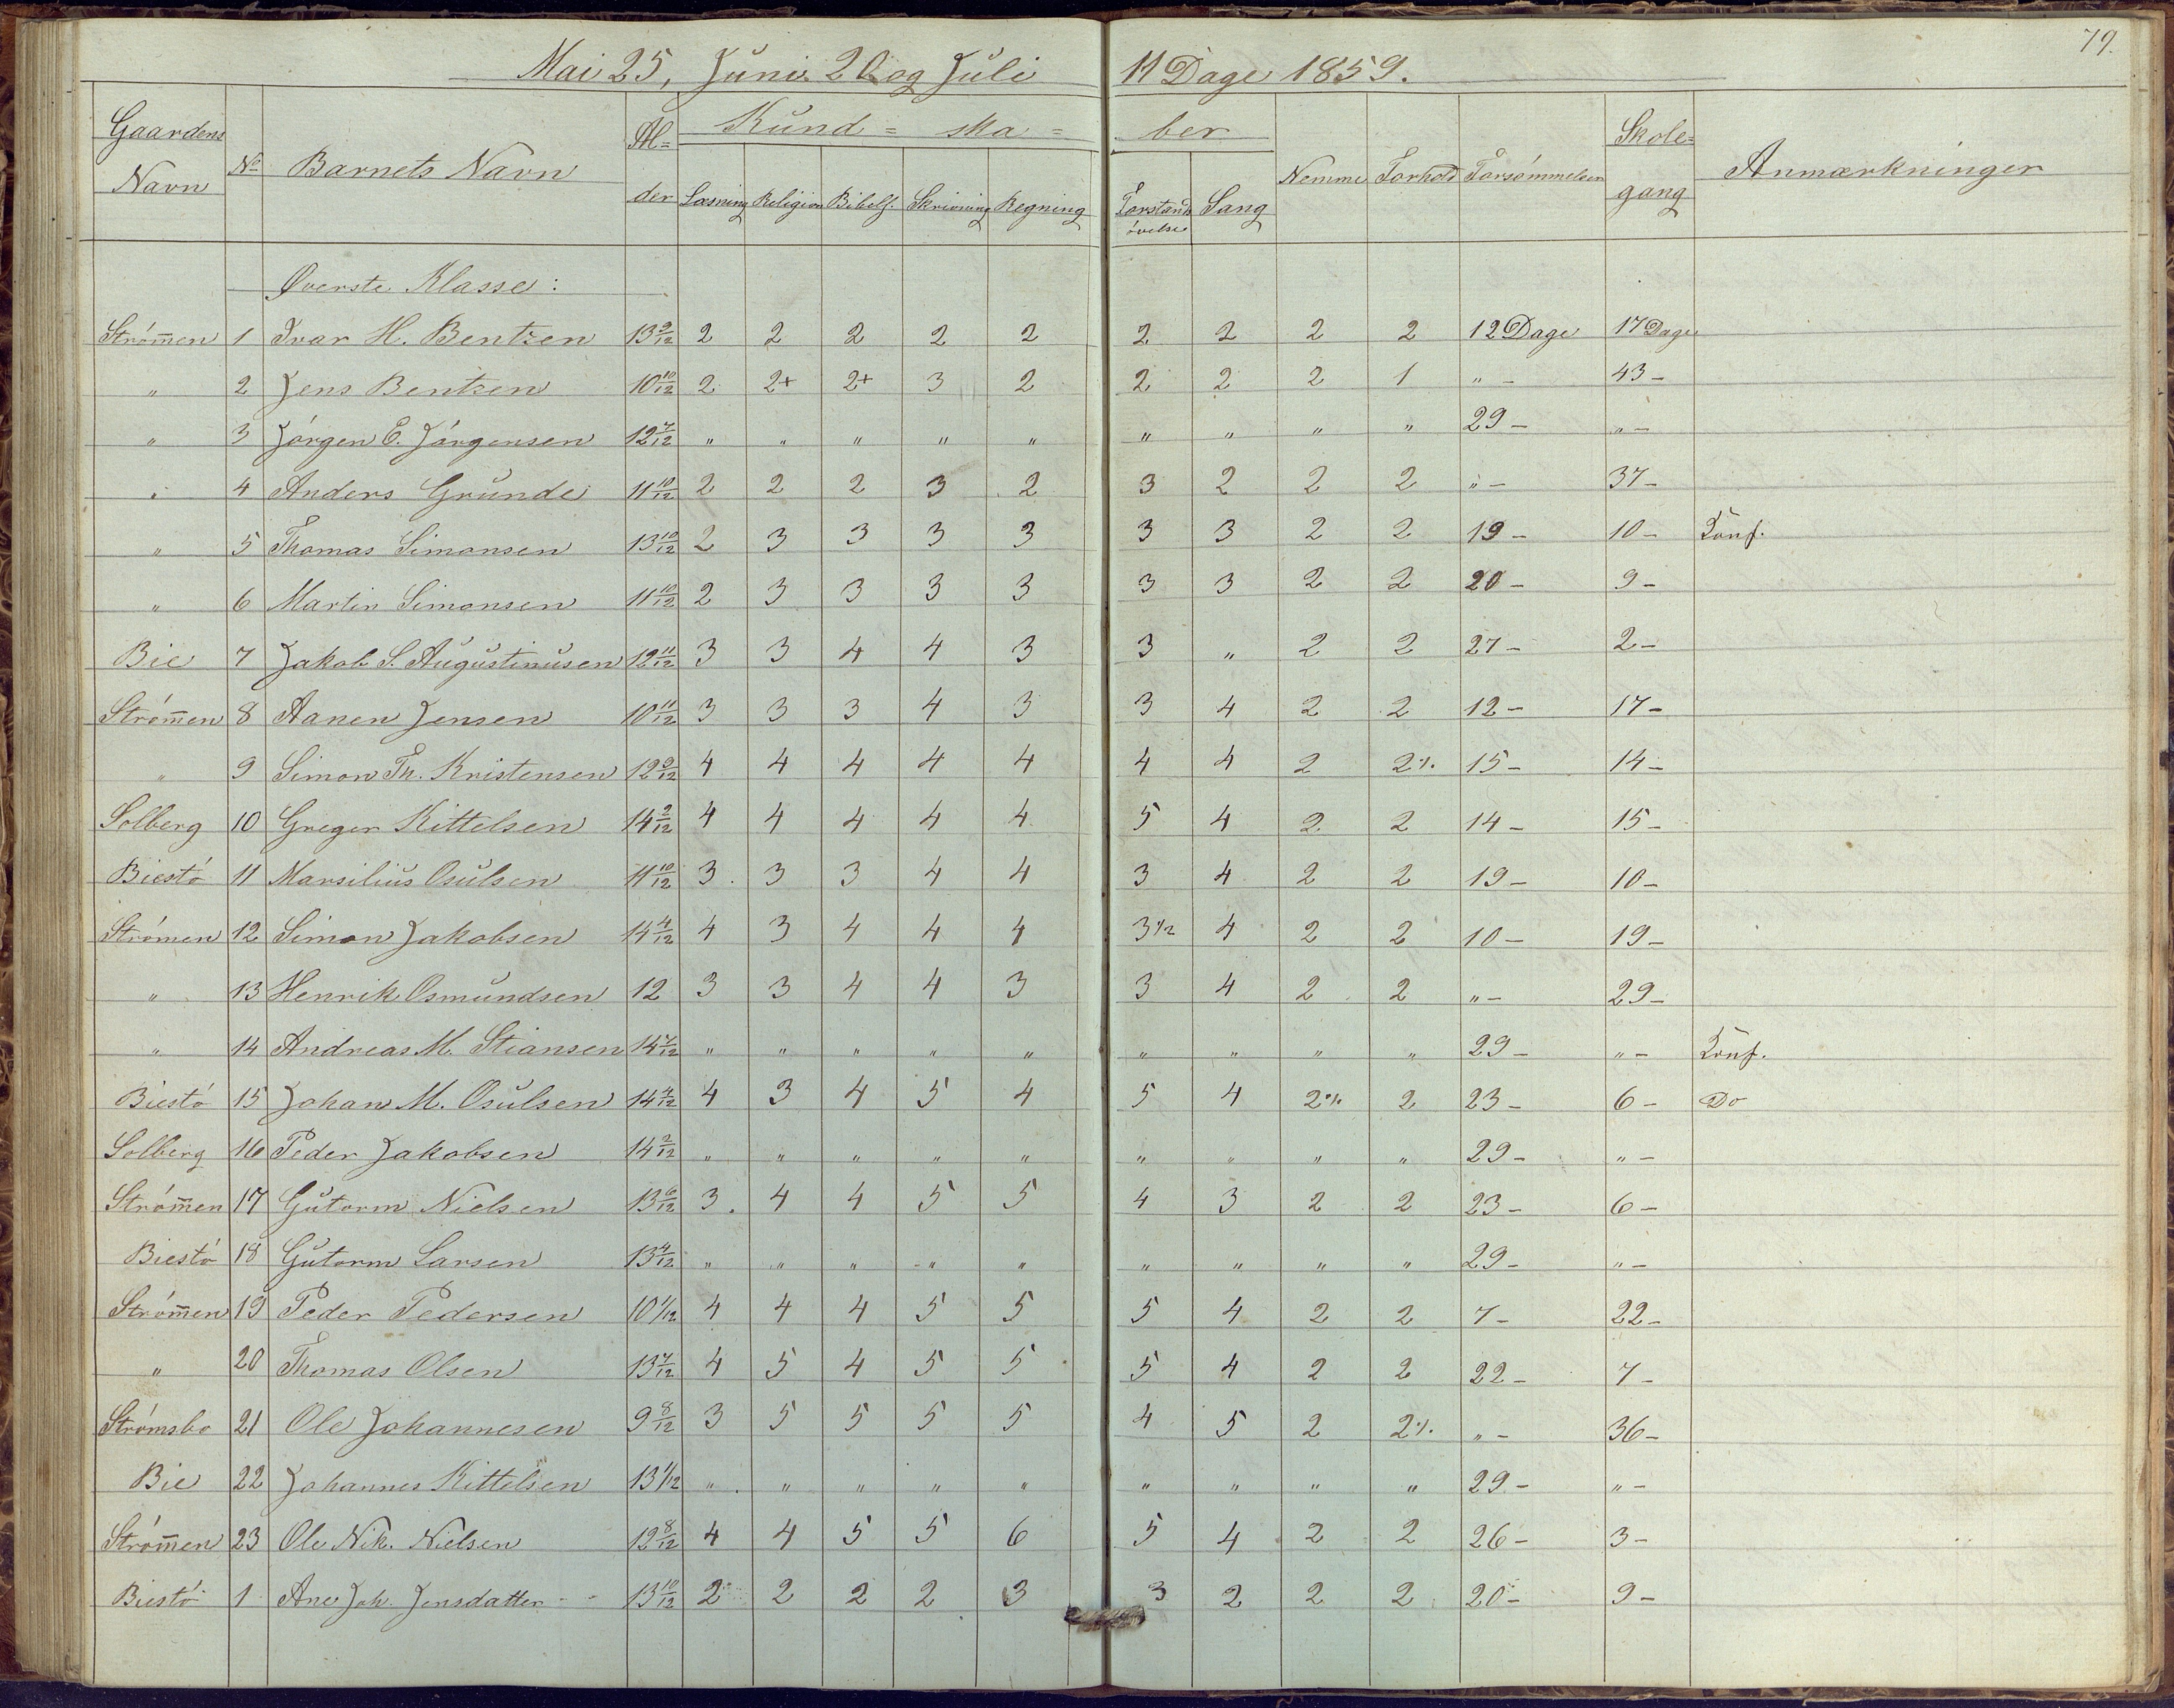 79.
Mai 25, Juni 20 og Juli 11 Dage 1859.
Gaardens Navn | No | Barnets Navn | Al=der | Kund=ska=ber | Nemme | Forhold | Forsømmelser | Skole=gang | Anmærkninger
Læsning | Religion | Bibelh. | Skrivning | Regning | Forstands øvelse | Sang
Øverste Klasse:
Strøm̄en 1 Ivar H. Bentzen 13 9/12 2 2 2 2 2 2 2 2 2 12 Dage 17 Dage
" 2 Jens Bentsen 10 10/12 2 2+ 2+ 3 2 2 2 2 1 " - 43 -
" 3 Jørgen E. Jørgensen 12 7/12 " " " " " " " " " 29 - " -
" 4 Anders Grunde 11 10/12 2 2 2 3 2 3 2 2 2 " - 37 -
" 5 Thomas Simonsen 13 10/12 2 3 3 3 3 3 3 2 2 19 - 10 - Konf.
" 6 Martin Simonsen 11 10/12 2 3 3 3 3 3 3 2 2 20 - 9 -
Bie 7 Jakob S. Augustinusen 12 11/12 3 3 4 4 3 3 " 2 2 27 - 2 -
Strøm̄en 8 Aanen Jensen 10 11/12 3 3 3 4 3 3 4 2 2 12 - 17 -
" 9 Simon Th. Kristensen 12 9/12 4 4 4 4 4 4 4 2 2% 15 - 14 -
Solberg 10 Greger Kittelsen 14 2/12 4 4 4 4 4 5 4 2 2 14 - 15 -
Biestø 11 Marsilius Osulsen 11 10/12 3 3 3 4 4 3 4 2 2 19 - 10 -
Strømen 12 Simon Jakobsen 14 4/12 4 3 4 4 4 3 1/2 4 2 2 10 - 19 -
" 13 Henrik Osmundsen 12 3 3 4 4 3 3 4 2 2 " - 29 -
" 14 Andreas M. Stiansen 14 7/12 " " " " " " " " " 29 - " - Konf.
Biestø 15 Johan M. Osulsen 14 4/12 4 3 4 5 4 5 4 2% 2 23 - 6 - Do
Solberg 16 Peder Jakobsen 14 2/12 " " " " " " " " " 29 - " -
Strøm̄en 17 Gutorm Nielsen 13 6/12 3 4 4 5 5 4 3 2 2 23 - 6 -
Biestø 18 Gutorm Larsen 13 4/12 " " " " " " " " " 29 - " -
Strøm̄en 19 Peder Pedersen 10 1/12 4 4 4 5 5 5 4 2 2 7 - 22 -
" 20 Thomas Olsen 13 7/12 4 5 4 5 5 5 4 2 2 22 - 7 -
Strømsbo 21 Ole Johannesen 9 8/12 3 5 5 5 5 4 5 2 2% " - 36 -
Bie 22 Johannes Kittelsen 13 1/12 " " " " " " " " " 29 - " -
Strøm̄en 23 Ole Nik. Nielsen 12 8/12 4 4 5 5 6 5 4 2 2 26 - 3 -
Biestø 1 Ane Joh. Jensdatter 13 10/12 2 2 2 2 3 3 2 2 2 20 - 9 -